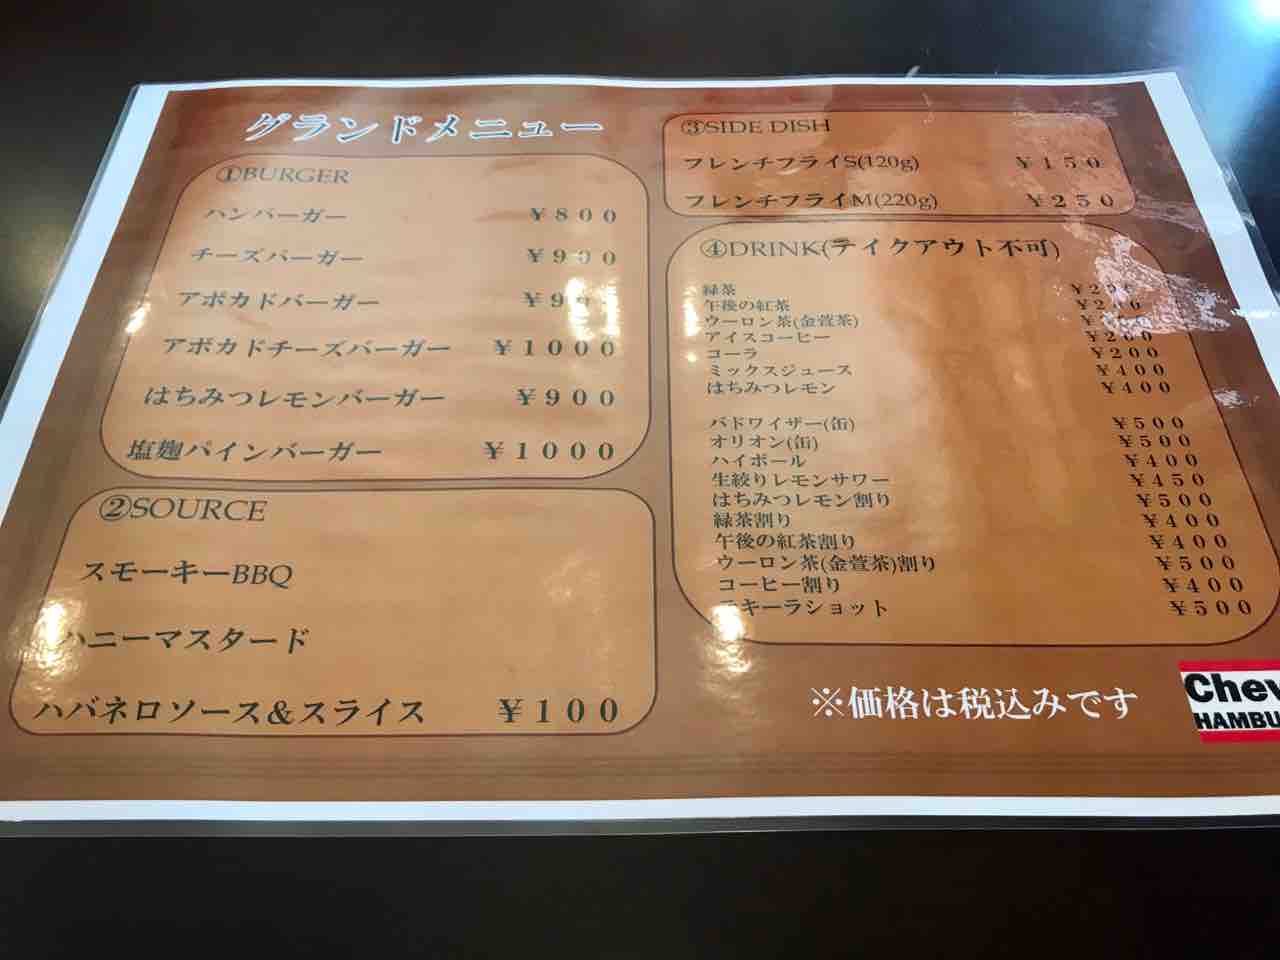 グランドメニュー
①BURGER
ハンバーガー ¥800
チーズバーガー ¥900
アボカドバーガー ¥9
アボカドチーズバーガー ¥1000
はちみつレモンバーガー ¥900
塩麹パインバーガー ¥1000
②SOURCE
スモーキーBBQ
ハニーマスタード
ハバネロソース&スライス ¥100
③SIDE DISH
フレンチフライS(120g) ¥150
フレンチフライM(220g) ¥250
④DRINK(テイクアウト不可)
緑茶 ¥200
午後の紅茶 ¥200
ウーロン茶(金萱茶)
アイスコーヒー ¥200
コーラ ¥200
ミックスジュース ¥400
はちみつレモン ¥400
バドワイザー(缶) ¥500
オリオン(缶) ¥500
ハイボール ¥400
生絞りレモンサワー ¥450
はちみつレモン割り ¥500
緑茶割り ¥400
午後の紅茶割り ¥400
ウーロン茶(金萱茶)割り ¥500
コーヒー割り ¥400
テキーラショット ¥500
※価格は税込みです
Chev
HAMBU